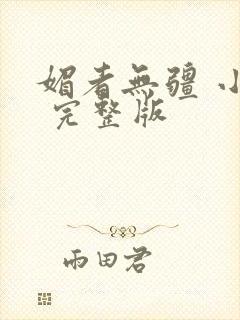 媚者無疆 小
完整版
雨田君